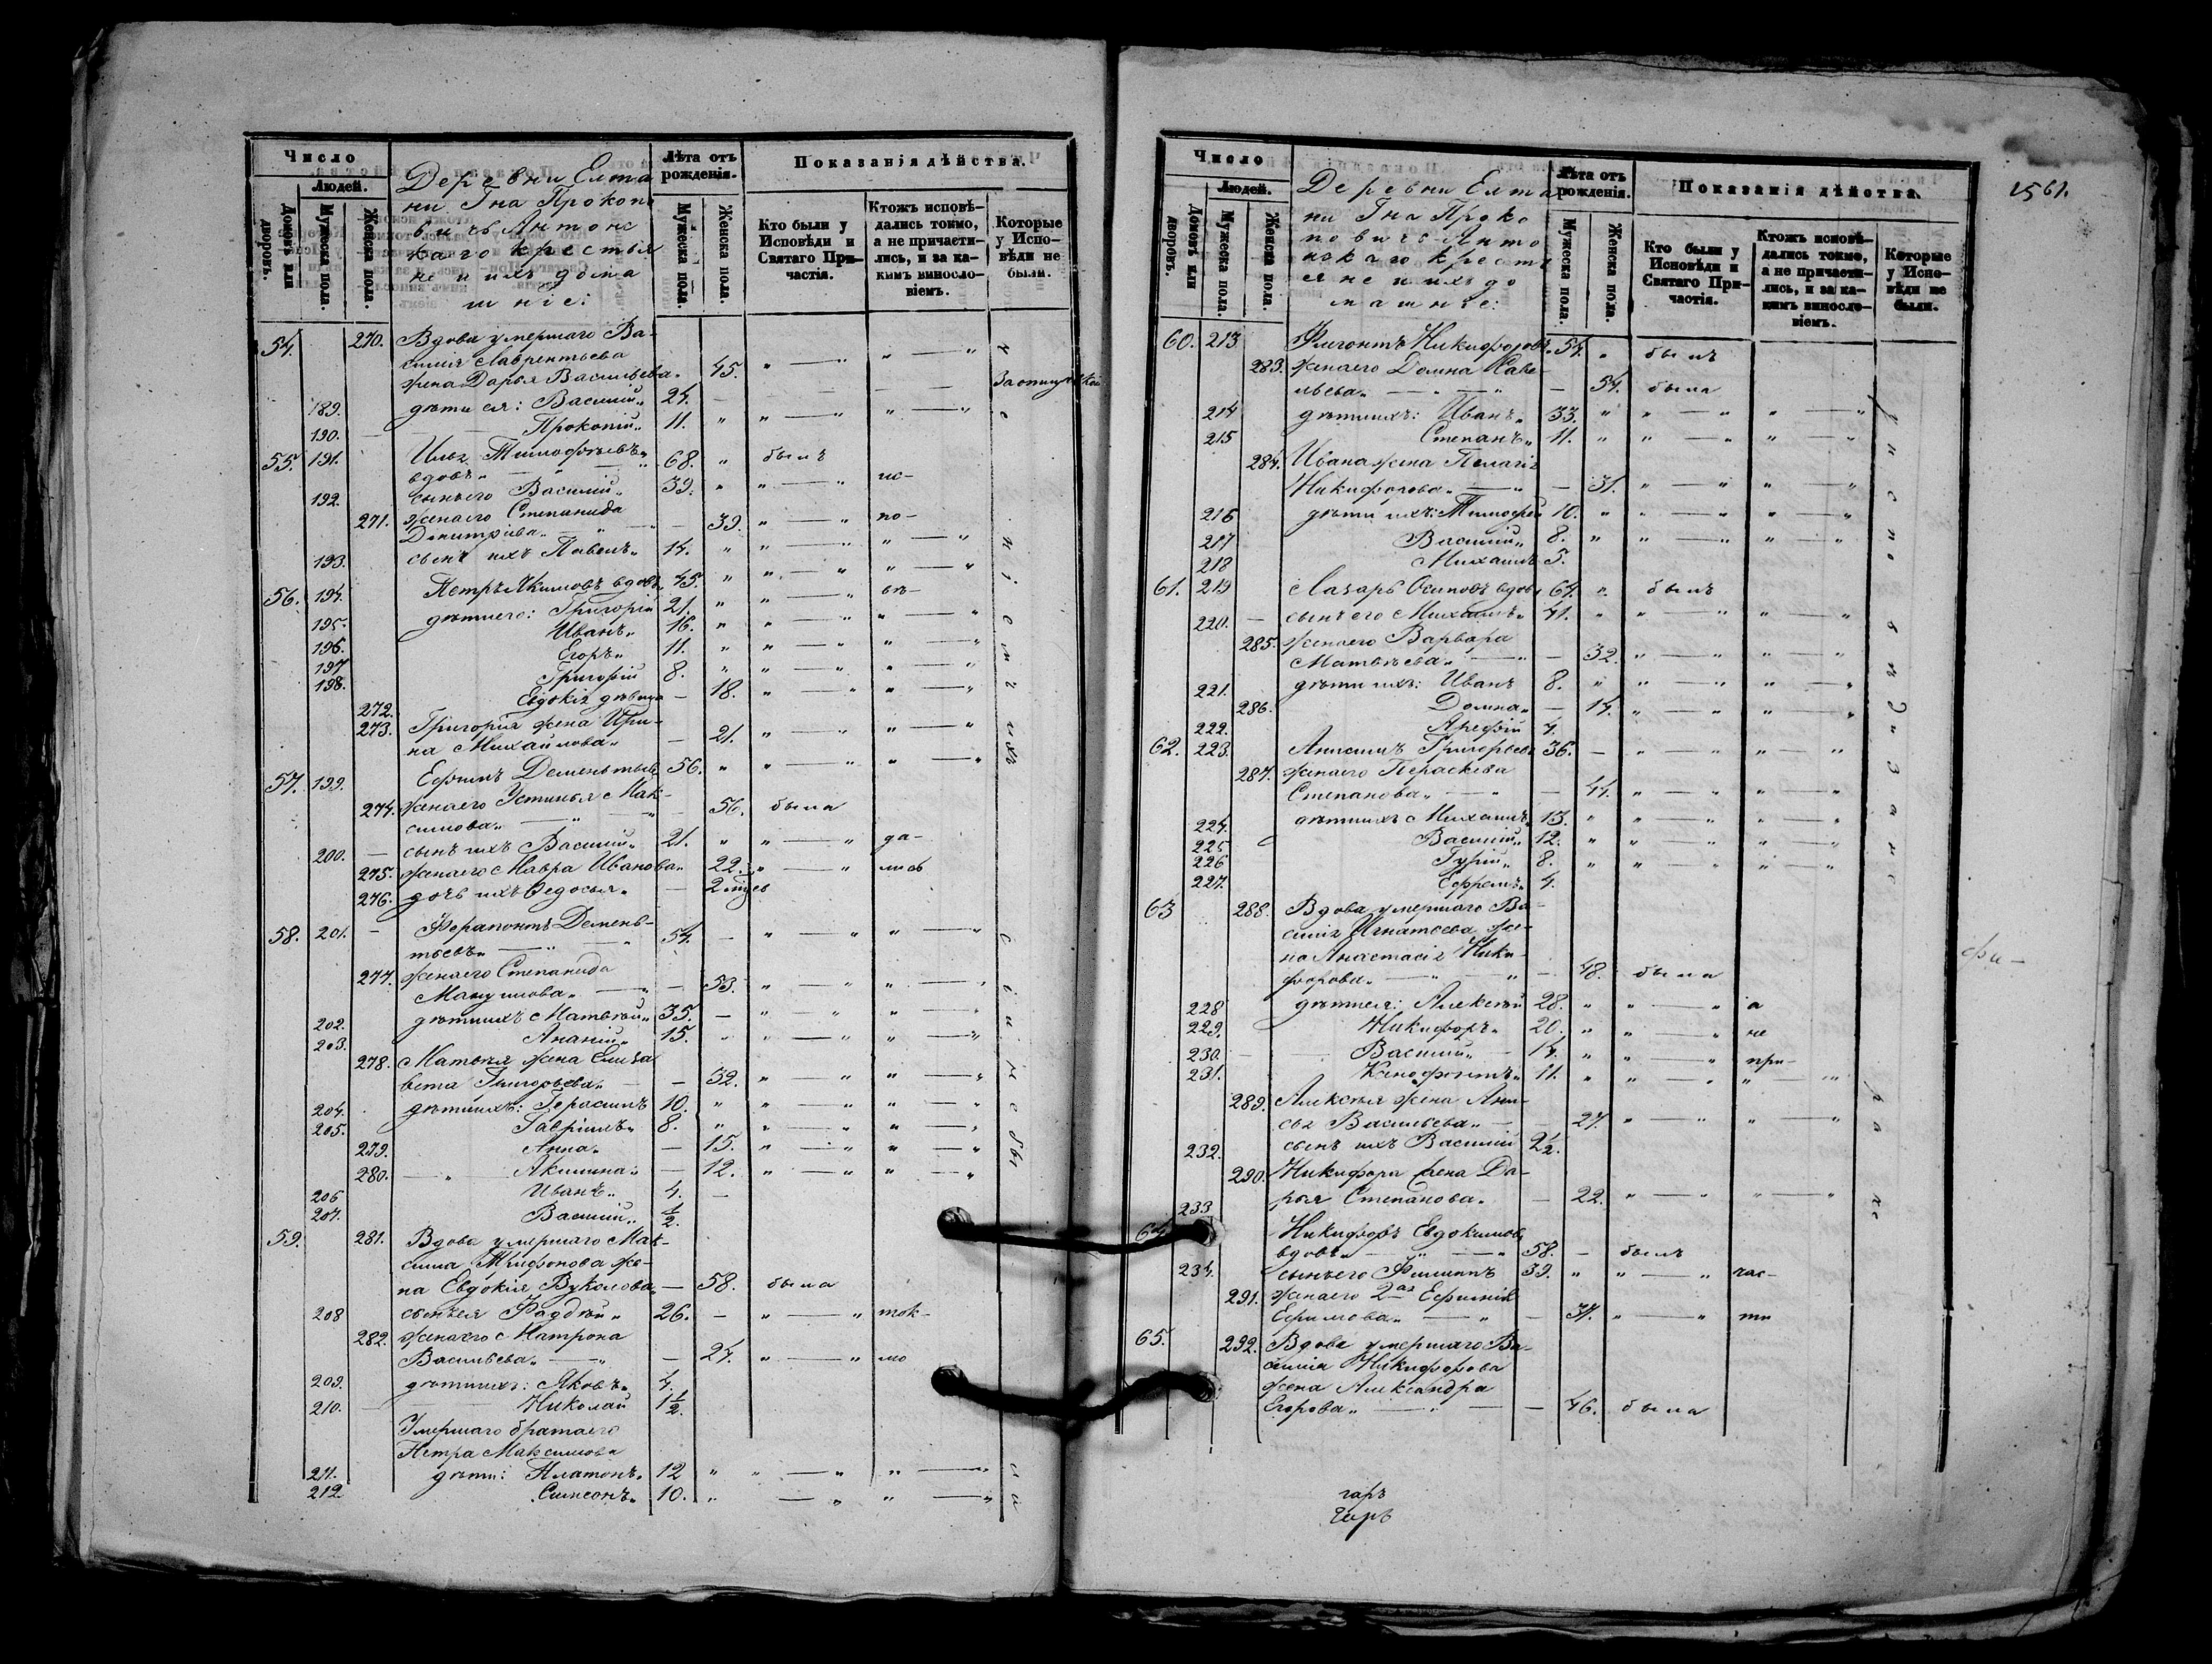 Число
Людей.
Домовъ или дворовъ.
Мужеска пола.
Женска пола.
Деревни Елта
ни Гна Прокопо
вичъ Антонс
каго крестья
не и ихъ дома
шніе:
Лѣта отъ рожденія.
Мужеска пола.
Женска пола.
Показанія дѣйства.
Кто были у Исповѣди и Святаго Причастія.
Ктожъ исповѣдались токмо, а не причастились, и за какимъ винословіемъ.
Которые у Исповѣди не были.
54. 270. Вдова умершаго Ва-
силія Лаврентьева
жена Дарья Васильева „ 45. „ — „ „ — „
189. дѣти ея: Василій „ 24. — За отлучкой
190. Прокопій „ 11. „ „ — „ „ — „
55. 191. Илья Тимофѣевъ „
вдовъ „ — „ 68. „ былъ
192. сынъ его Василій „ 39. „ „ — „ ис-
271. жена его Степанида
Дмитріева „ — „ — 39. „ — „ по-
193. сынъ ихъ Павелъ „ 14. „ „ — „ „ — „
56. 194. Петръ Якимовъ вдовъ 45. „ „ — „ „ — „
195. дѣти его: Григорій 21. „ „ — „ вѣ-
196. Иванъ „ 16. „ „ — „ „ — „
197 Егоръ „ 11. „ „ — „ „ — „
198. Григорій 8. „ „ — „ „ — „
272. Евдокія дѣвица — 18. „ — „ „ — „
273. Григорія жена Ири-
на Михайлова „ — 21. „ — „ „ — „
57. 199. Ефимъ Дементьевъ 56. „ „ — „ „ — „
274. жена его Устинья Мак-
симова „ — „ — 56. была
200. — сынъ ихъ Василій „ 21. „ „ — „ да-
275. жена его Мавра Иванова „ 22. „ — „ лись
276. дочь ихъ Ѳедосья „ — 2 мѣс
58. 201. — Ферапонтъ Демень-
тьевъ „ — „ 54. — „ — „ „ — „
277. жена его Степанида
Мануилова „ — „ — 53. „ — „ „ — „
202. дѣти ихъ Матвѣй „ 35. — „ — „ „ — „
203. Ананій „ 15. „ „ — „ „ — „
278. Матвѣя жена Елиза
вета Григорьева „ — — 32. „ — „ „ — „
204. дѣти ихъ: Герасимъ 10. „ „ — „ „ — „
205. Гавріилъ „ 8. „ „ — „ „ — „
279. Анна „ — 15. „ — „ „ — „
280. — „ Акилина „ — 12. „ — „ „ — „
206 Иванъ „ 4. —
207. Василій „ 1/2.
59. 281. Вдова умершаго Мак-
сима Трифонова же-
на Евдокія Вуколова „ — 58. была
208 сынъ ея Фаддѣй „ 26. — „ — „ ток-
282. жена его Матрона
Васильева „ — „ — 24. „ — „ мо
209. дѣти ихъ: Яковъ „ 4.
210. Николай 1 1/2.
Умершаго брата его
Петра Максимова
211. дѣти: Платонъ „ 12 „ „ — „ „ — „
212. Симеонъ „ 10. „ — „ „ — „
1561.
Число
Людей.
Домовъ или дворовъ.
Мужеска пола.
Женска пола.
Деревни Елта
ни Гна Проко
повичъ-Анто
нскаго кресть
яне и ихъ до
машніе:
Лѣта отъ рожденія.
Мужеска пола.
Женска пола.
Показанія дѣйства.
Кто были у Исповѣди и Святаго Причастія.
Ктожъ исповѣдались токмо, а не причастились, и за какимъ винословіемъ.
Которые у Исповѣди не были.
60. 213 Флегонтъ Никифоровъ „ 54. „ былъ
283. жена его Домна Саве
льева „ — „ — 54. была
214 дѣти ихъ: Иванъ „ 33. „ „ — „ „ — „
215 Степанъ „ 11. „ „ — „ „ — „
284. Ивана жена Пелагія
Никифорова „ — „ — 31. „ — „ „ — „
216 дѣти ихъ: Тимофей 10. „ „ — „ „ — „
217 Василій „ 8. „ „ — „ „ — „
218 Михаилъ 5.
61. 219 Лазарь Осиповъ вдовъ 64. „ былъ
220. — сынъ его Михаилъ „ 41. „ „ — „ „ — „
285. жена его Варвара
Матвѣева „ — „ — 32. „ — „ „ — „
221. дѣти ихъ: Иванъ 8. „ „ — „ „ — „
286. Домна „ — 14. „ — „ „ — „
222. Арефій 4.
62. 223. Анисимъ Григорьевъ 36. — „ — „ „ — „
287. жена его Параскева
Степанова „ — „ — 44. „ — „ „ — „
224. дѣти ихъ Михаилъ „ 13. „ „ — „ „ — „
225 Василій „ 12. „ „ — „ „ — „
226 Гурій „ 8. „ „ — „ „ — „
227. Ефремъ „ 4.
63 288. Вдова умершаго Ва-
силія Игнатьева же-
на Анастасія Ники-
форова „ — „ — „ — 48. была
228 дѣти ея: Алексѣй 28. „ „ — „ а
229. Никифоръ „ 20. „ „ — „ не
230. Василій „ 14. „ „ — „ при-
231. Ксенофонтъ „ 11. „ „ — „ „ — „
289. Алексѣя жена Ани-
сья Васильева „ — — 27. „ — „ „ — „
232. сынъ ихъ Василій 2 1/2.
290. Никифора жена Да-
рья Степанова „ — 22. „ — „ „ — „
64. 233 Никифоръ Евдокимовъ
вдовъ „ — „ — „ 58. — былъ
234. сынъ его Филиппъ 39. „ „ — „ час-
291. жена его 2ая Ефимія
Ефимова „ — „ — 34. „ — „ ти
65. 292. Вдова умершаго Ва-
силія Никифорова
жена Александра
Егорова „ — „ — — 46. была